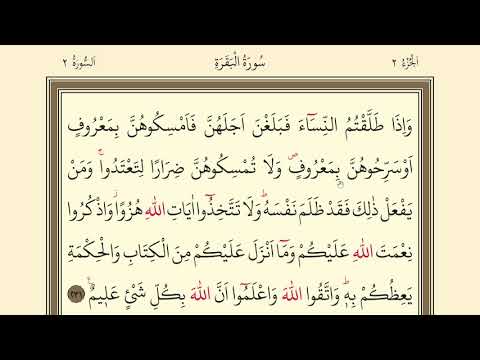 اَلْجُزْءُ ٢ سُورَةُ الْبَقَرَةِ اَلسُّورَةُ ٢
وَاِذَا طَلَّقْتُمُ النِّسَٓاءَ فَبَلَغْنَ اَجَلَهُنَّ فَاَمْسِكُوهُنَّ بِمَعْرُوفٍ
اَوْسَرِّحُوهُنَّ بِمَعْرُوفٍۖ وَلَا تُمْسِكُوهُنَّ ضِرَارًا لِتَعْتَدُواۚ وَمَنْ
يَفْعَلْ ذٰلِكَ فَقَدْ ظَلَمَ نَفْسَهُۜ وَلَا تَتَّخِذُٓوا اٰيَاتِ اللّٰهِ هُزُوًاۘ وَاذْكُرُوا
نِعْمَتَ اللّٰهِ عَلَيْكُمْ وَمَٓا اَنْزَلَ عَلَيْكُمْ مِنَ الْكِتَابِ وَالْحِكْمَةِ
يَعِظُكُمْ بِهِۜ وَاتَّقُوا اللّٰهَ وَاعْلَمُٓوا اَنَّ اللّٰهَ بِكُلِّ شَيْءٍ عَلِيمٌ۟ ﴿٢٣١﴾